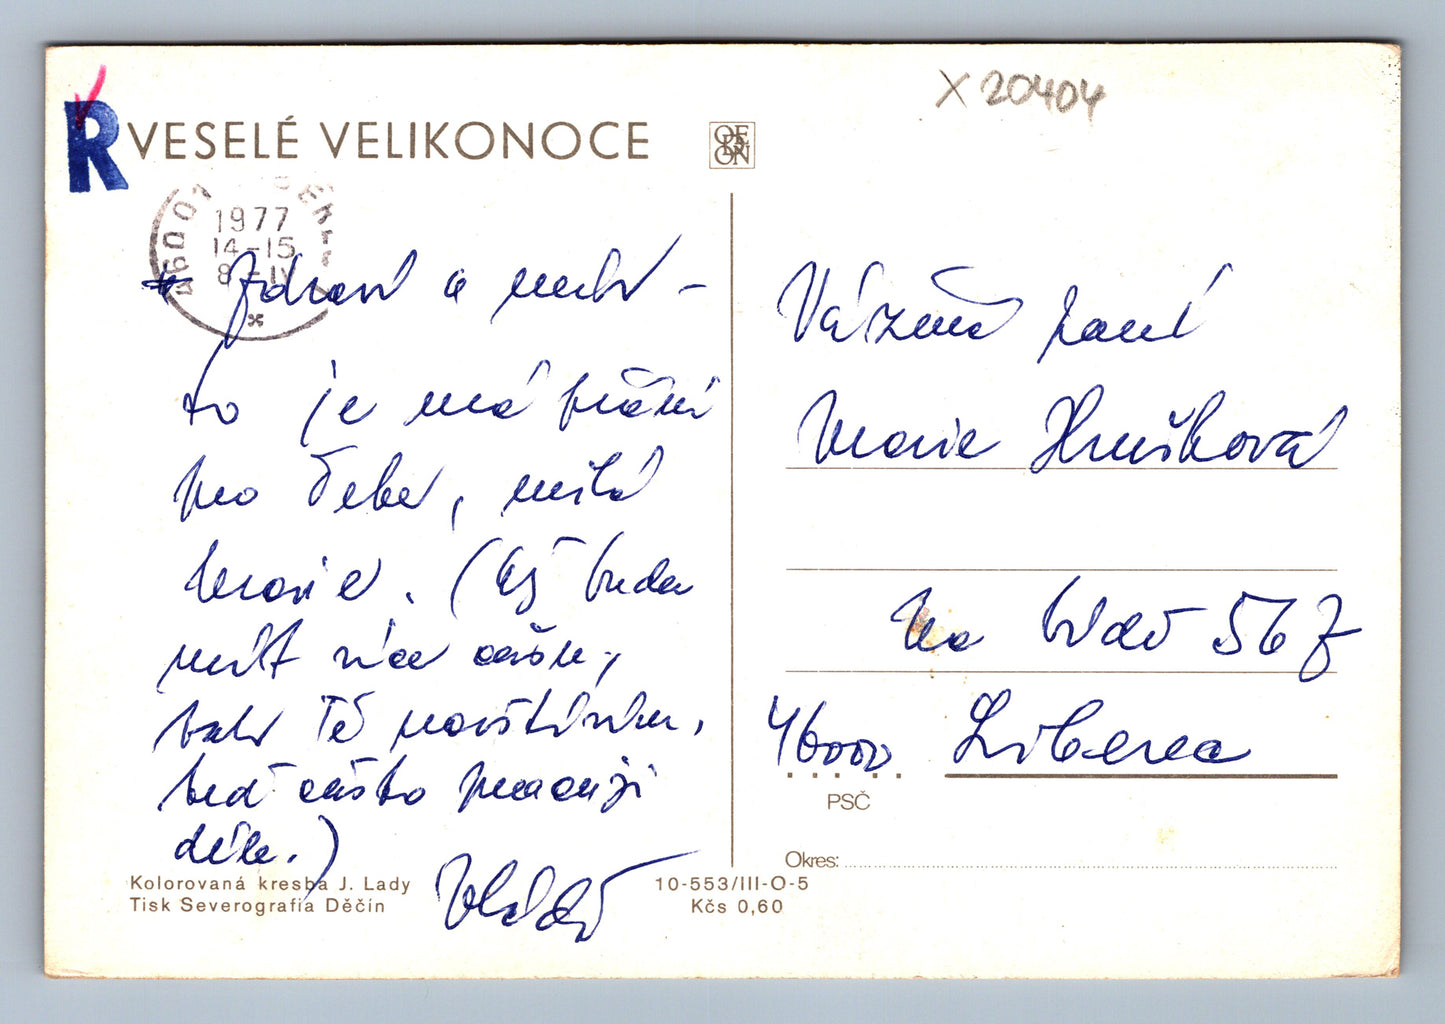 X 20404
R
VESELÉ VELIKONOCE
ORBIS ON
1977
14-15
8-IV
Zdraví a
to je má
pro Tebe, milá
Marie. (Až budu
mít více času,
Tě navštívím,
teď často pracuji
déle.)
Vláďa
Kolorovaná kresba J. Lady
Tisk Severografia Děčín
10-553/III-O-5
Kčs 0,60
Vážená paní
Marie Hrušková
Na 567
46000 Liberec
PSČ
Okres: